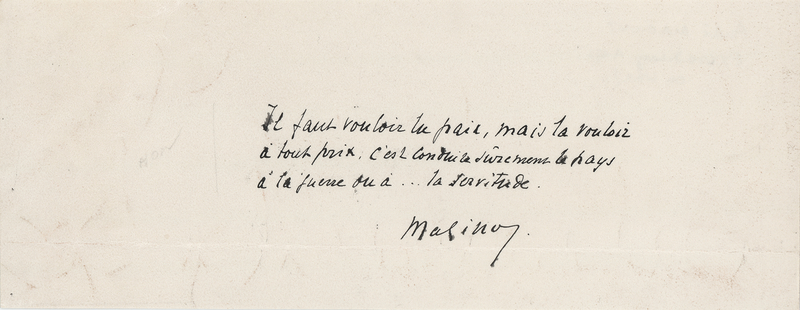 Il faut vouloir la paix, mais la vouloir
à tout prix, c'est conduire sûrement le pays
à la guerre ou à ... la servitude.